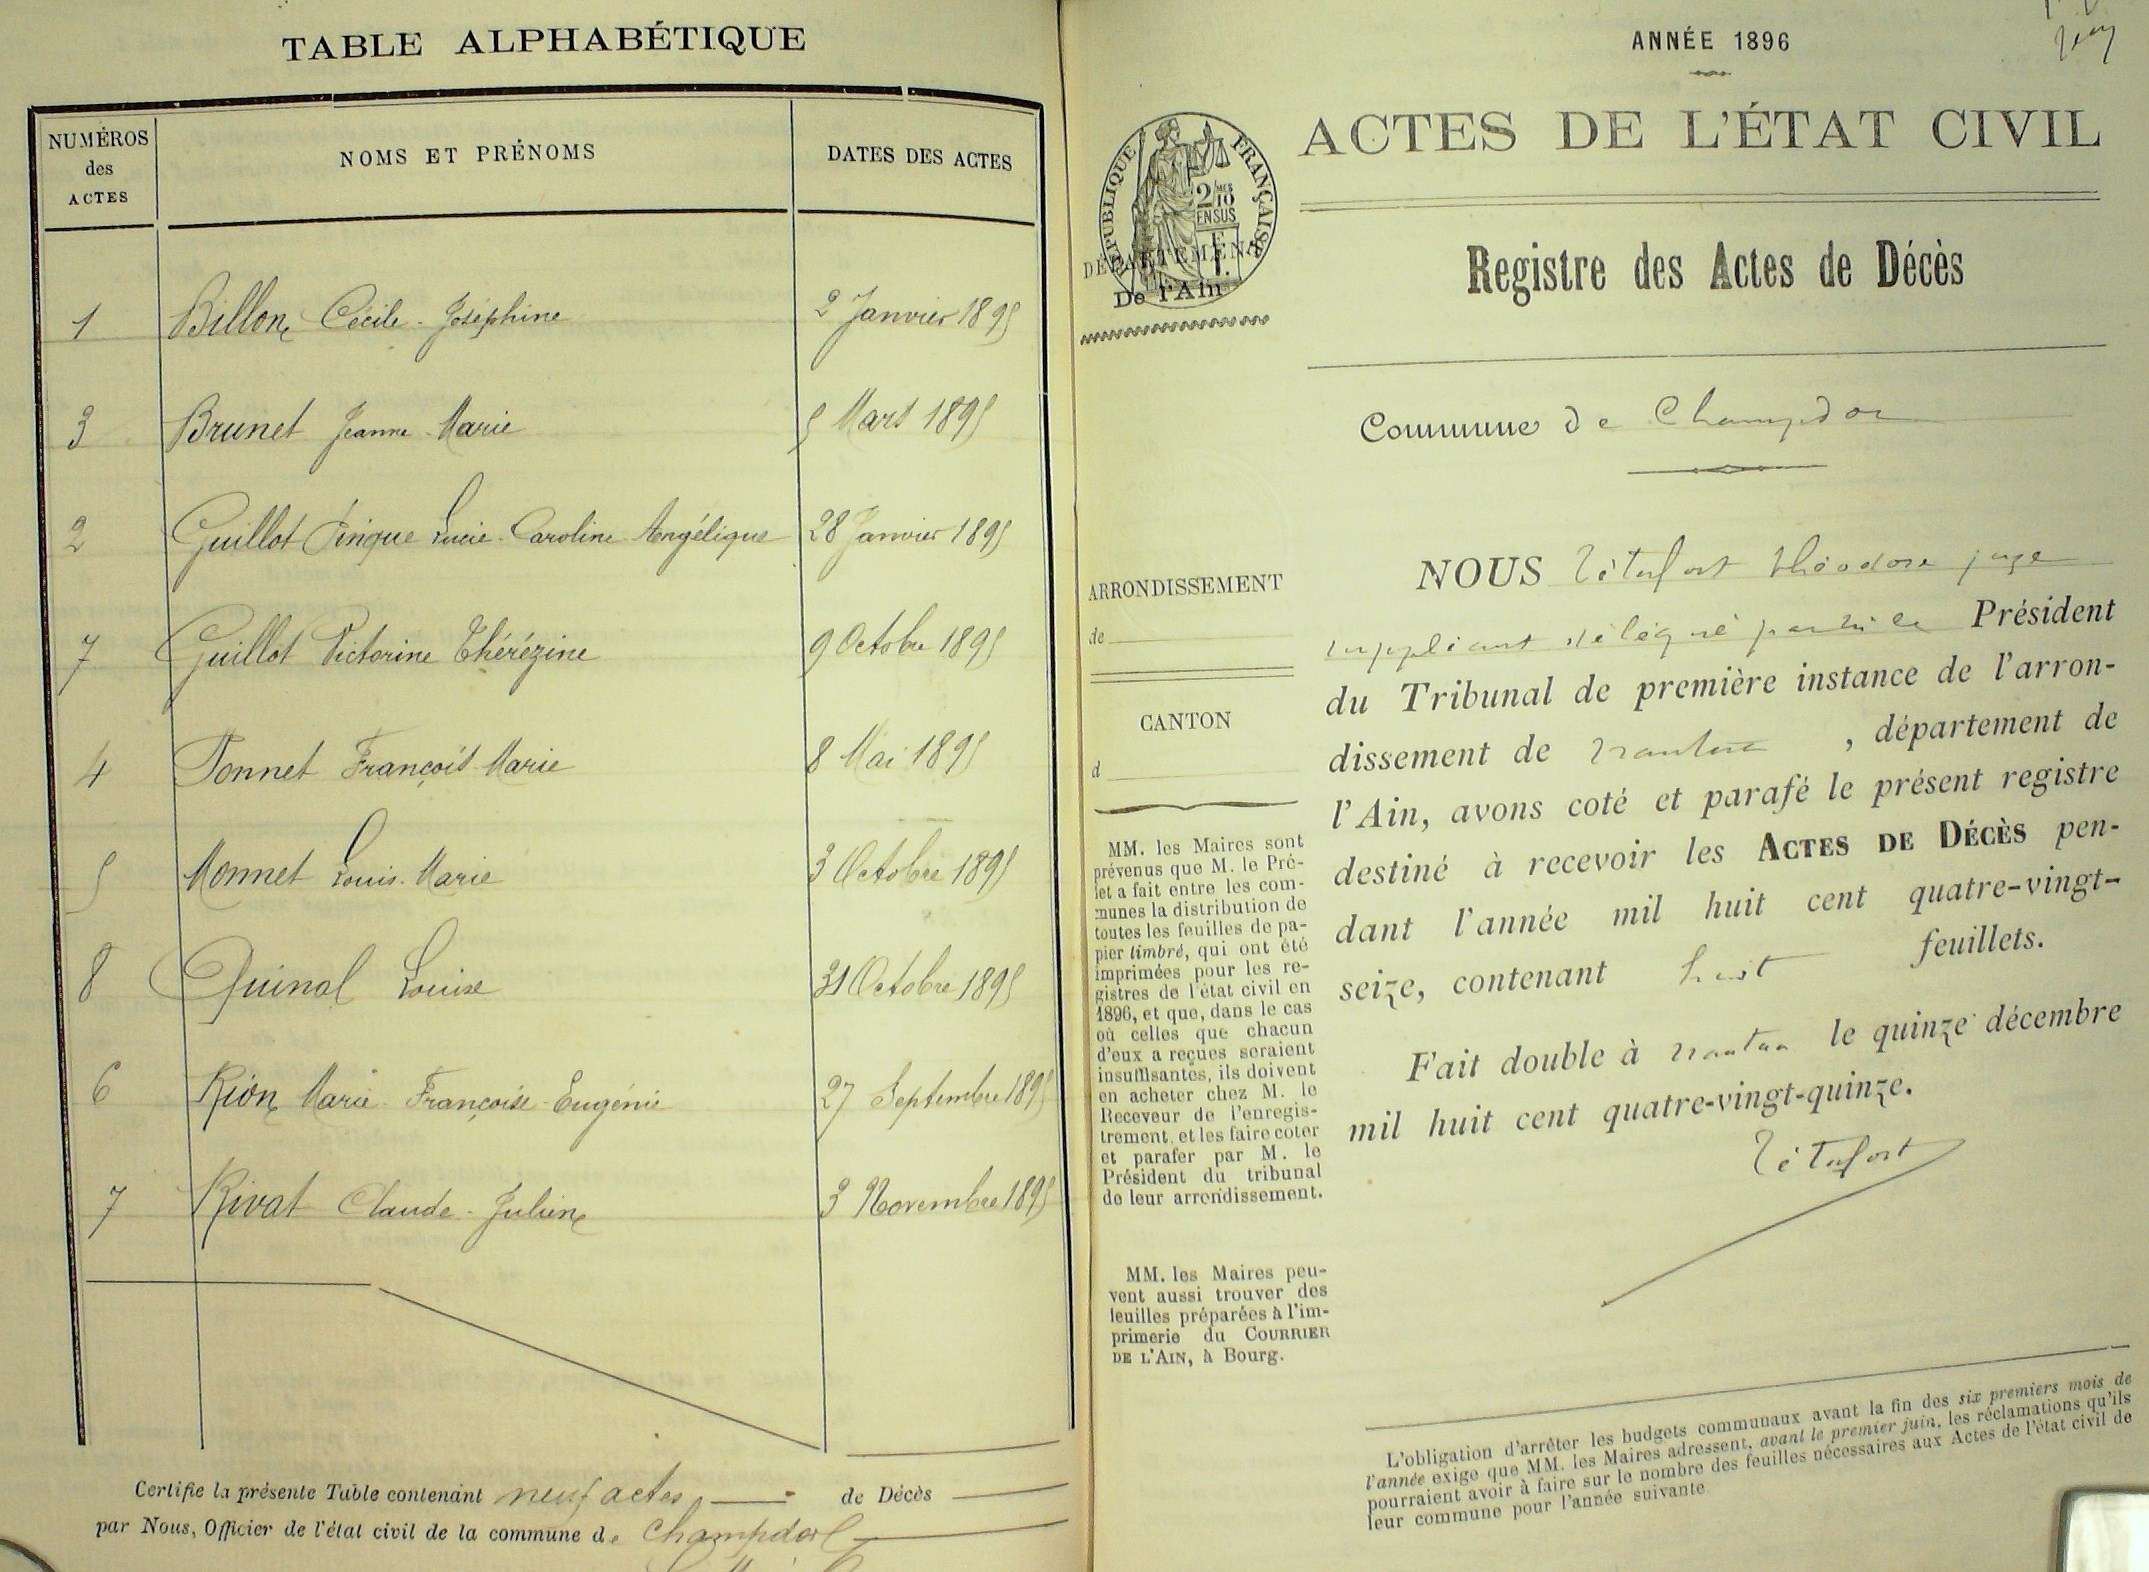 TABLE ALPHABÉTIQUE
NUMÉROS des ACTES NOMS ET PRÉNOMS DATES DES ACTES
1 Billon Cécile Joséphine 2 Janvier 1895
3 Brunet Jeanne Marie 5 Mars 1895
2 Guillot Lucie Caroline Angélique 28 Janvier 1895
7 Guillot Victorine Thérézine 9 Octobre 1895
4 Ponnet François Marie 8 Mai 1895
5 Monnet Louis Marie 3 Octobre 1895
8 Quinal Louise 31 Octobre 1895
6 Rion Marie Françoise Eugénie 27 Septembre 1895
7 Rivat Claude Julien 3 Novembre 1895
Certifie la présente Table contenant neuf actes de Décès
par Nous, Officier de l'état civil de la commune de Champdor
ANNÉE 1896
RÉPUBLIQUE FRANÇAISE
2/10
EN SUS
DÉPARTEMENT
De l'Ain
ACTES DE L'ÉTAT CIVIL
Registre des Actes de Décès
Commune de Champdor
ARRONDISSEMENT
de
CANTON
d
MM. les Maires sont
prévenus que M. le Pré-
fet a fait entre les com-
munes la distribution de
toutes les feuilles de pa-
pier timbré, qui ont été
imprimées pour les re-
gistres de l'état civil en
1896, et que, dans le cas
où celles que chacun
d'eux a reçues seraient
insuffisantes, ils doivent
en acheter chez M. le
Receveur de l'enregis-
trement, et les faire coter
et parafer par M. le
Président du tribunal
de leur arrondissement.
MM. les Maires peu-
vent aussi trouver des
feuilles préparées à l'im-
primerie du COURRIER
DE L'AIN, à Bourg.
NOUS Tétafort théodore juge
suppléant délégué par M. le Président
du Tribunal de première instance de l'arron-
dissement de nantua, département de
l'Ain, avons coté et parafé le présent registre
destiné à recevoir les ACTES DE DÉCÈS pen-
dant l'année mil huit cent quatre-vingt-
seize, contenant huit feuillets.
Fait double à nantua le quinze décembre
mil huit cent quatre-vingt-quinze.
Tétafort
L'obligation d'arrêter les budgets communaux avant la fin des six premiers mois de
l'année exige que MM. les Maires adressent, avant le premier juin, les réclamations qu'ils
pourraient avoir à faire sur le nombre des feuilles nécessaires aux Actes de l'état civil de
leur commune pour l'année suivante